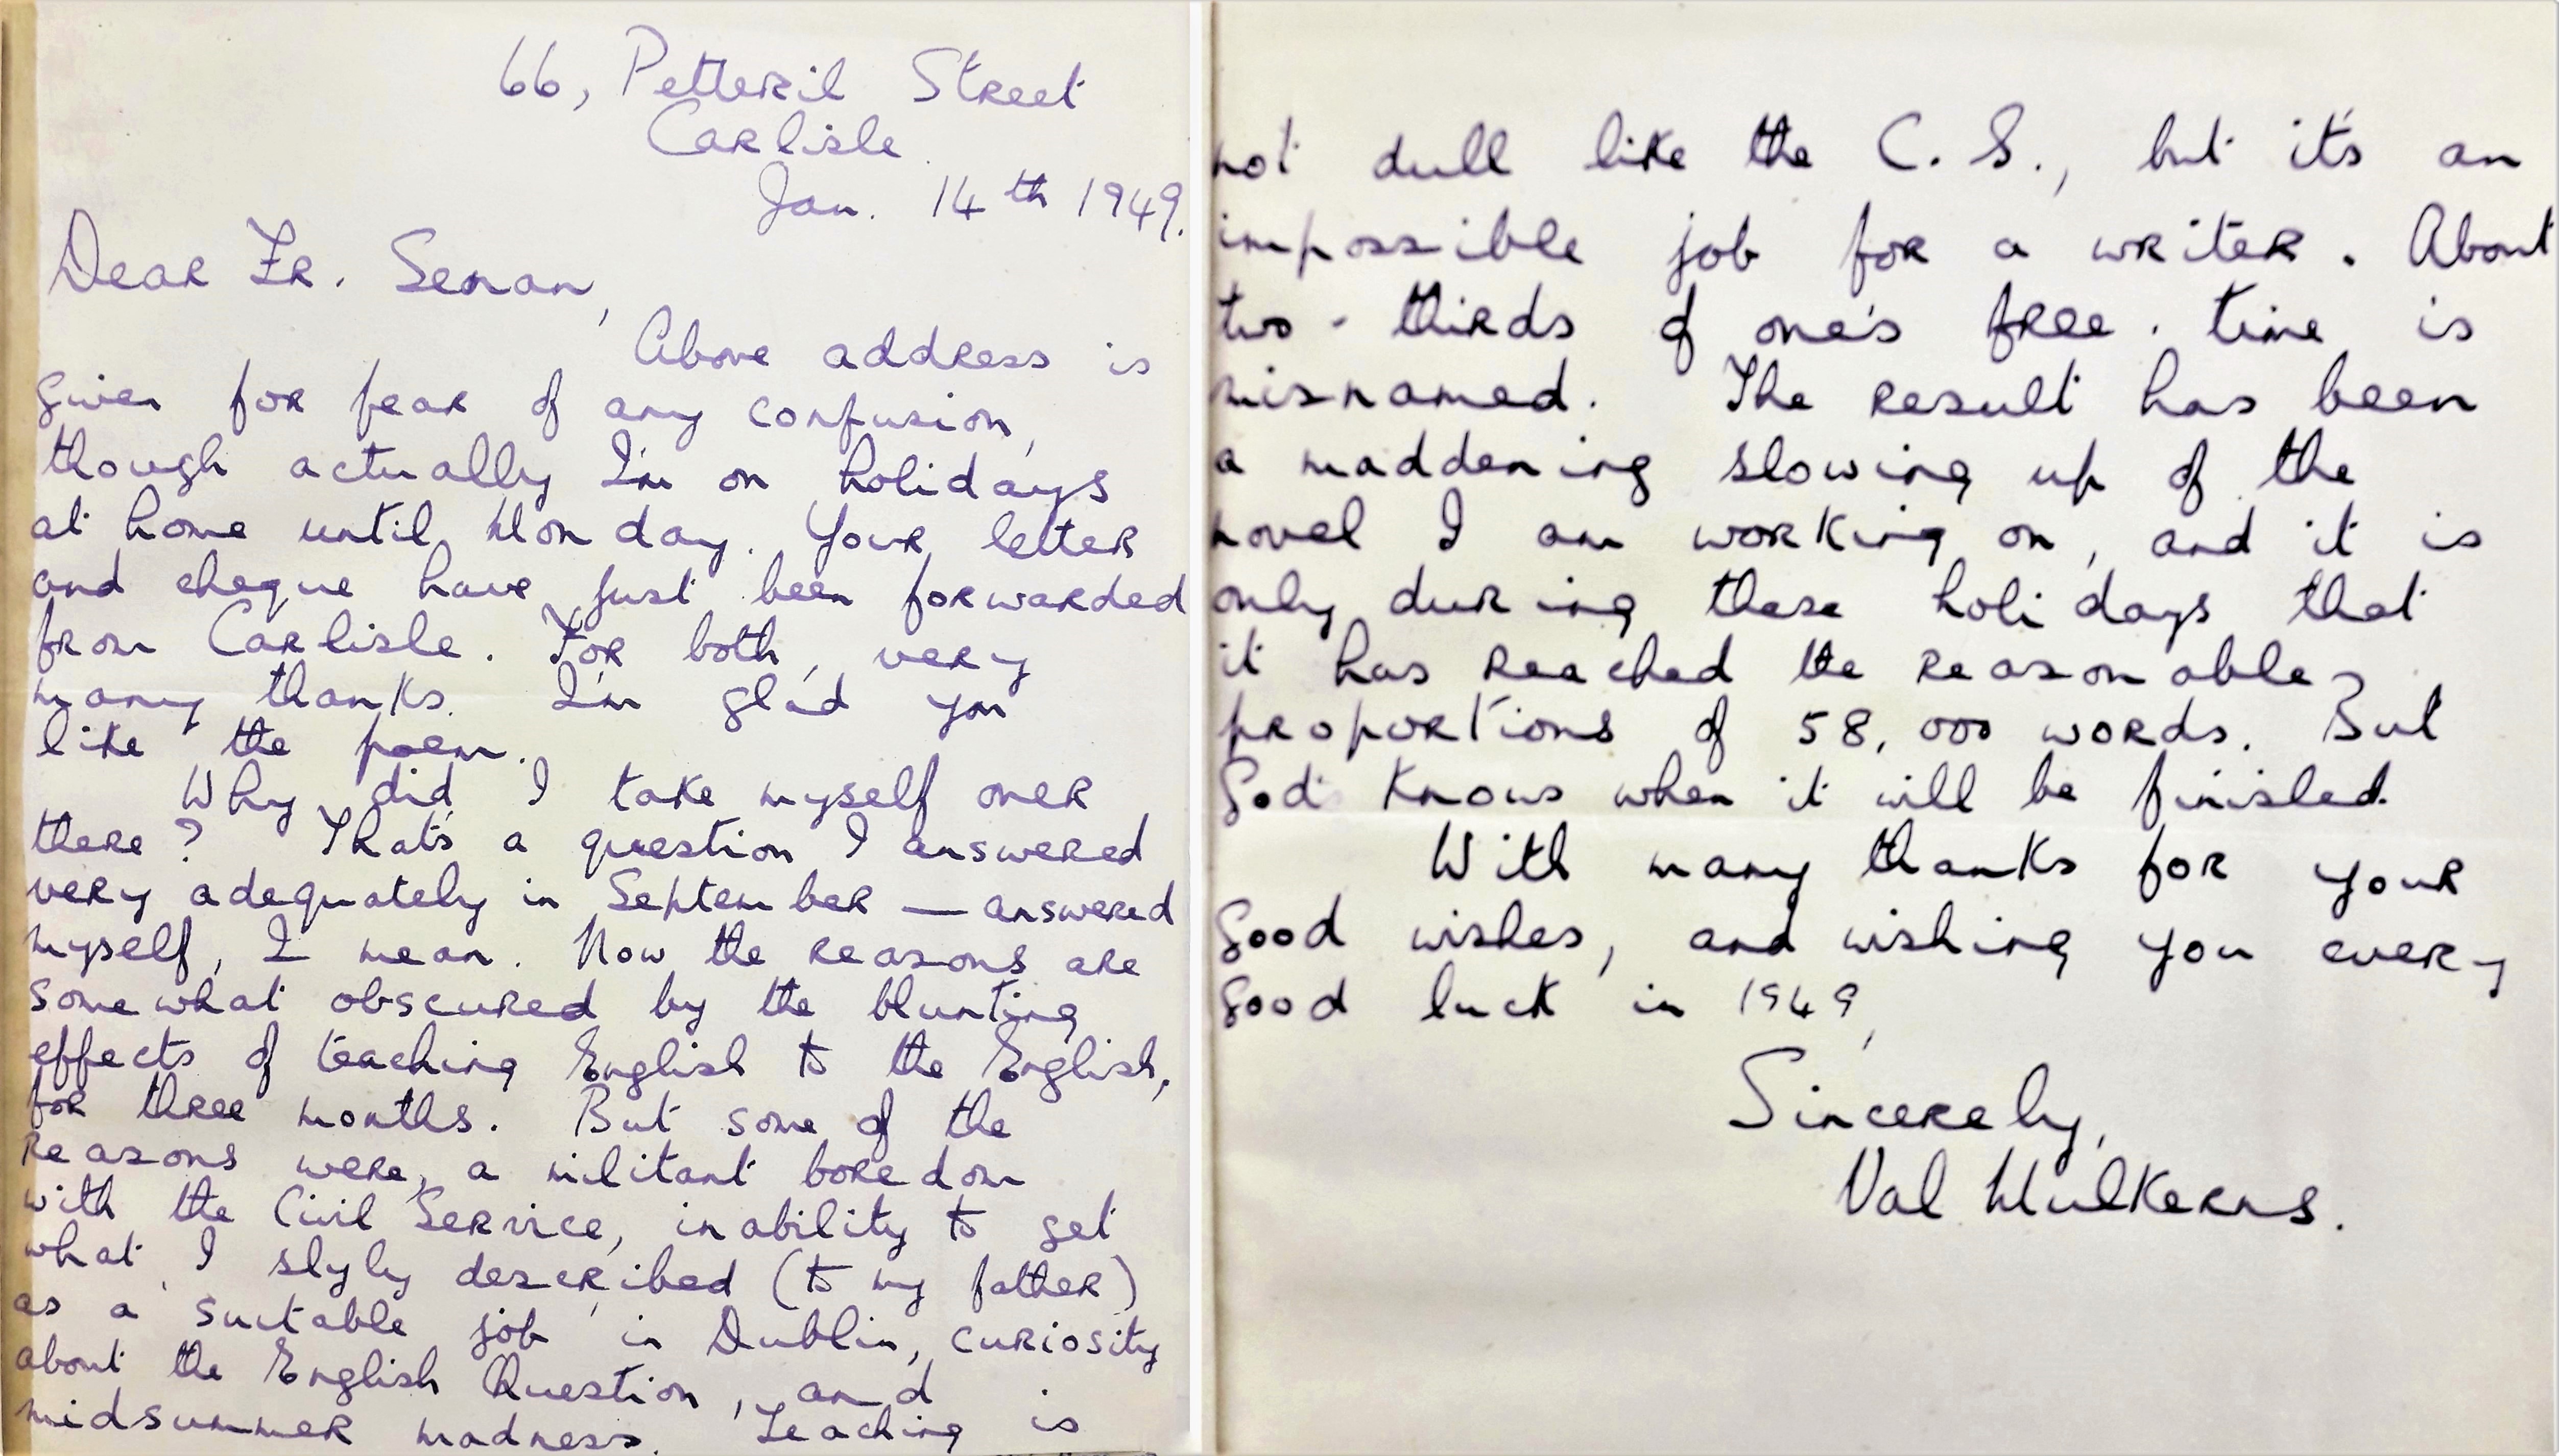 66, Petteril Street
Carlisle.
Jan. 14th 1949.
Dear Fr. Senan,
Above address is
given for fear of any confusion,
though actually I'm on holidays
at home until Monday. Your letter
and cheque have just been forwarded
from Carlisle. For both, very
many thanks. I'm glad you
like the poem.
Why did I take myself over
there? That's a question I answered
very adequately in September — answered
myself, I mean. Now the reasons are
somewhat obscured by the blunting
effects of teaching English to the English,
for three months. But some of the
reasons were, a militant boredom
with the Civil Service, inability to get
what I slyly described (to my father)
as a suitable job in Dublin, curiosity
about the English Question, and
midsummer madness. Teaching is
not dull like the C. S., but it's an
impossible job for a writer. About
two-thirds of one's free-time is
misnamed. The result has been
a maddening slowing up of the
novel I am working on, and it is
only during these holidays that
it has reached the reasonable
proportions of 58,000 words. But
God knows when it will be finished.
With many thanks for your
good wishes, and wishing you every
good luck in 1949,
Sincerely,
Val Mulkerns.